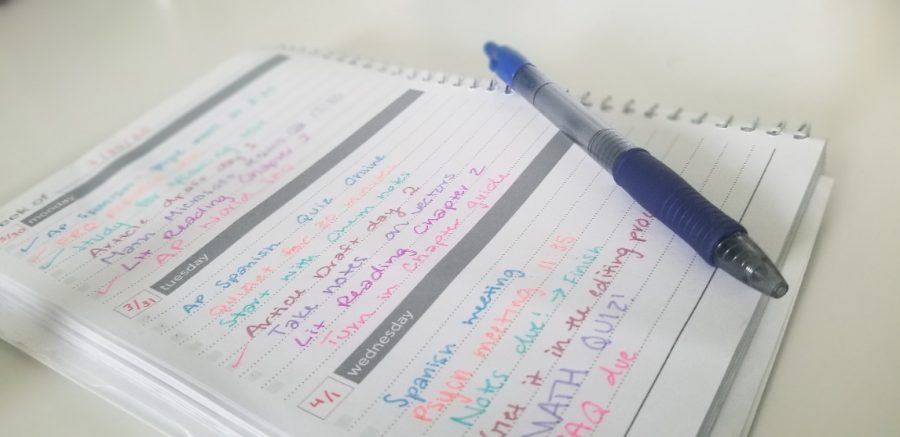 monday
3/30
AP Spanish
Study for
Article draft day 1
Lit Reading Chapter 2
AP World
tuesday
3/31
AP Spanish Quiz Online
Quizlet for 20 minutes
Start with Chem notes
Article Draft day 2
Take notes on vectors
Lit Reading Chapter 2
Turn in Chapter guide
wednesday
4/1
Spanish meeting
Psych meeting 11:45
Notes due! → Finish
it in the editing
MATH QUIZ!
due